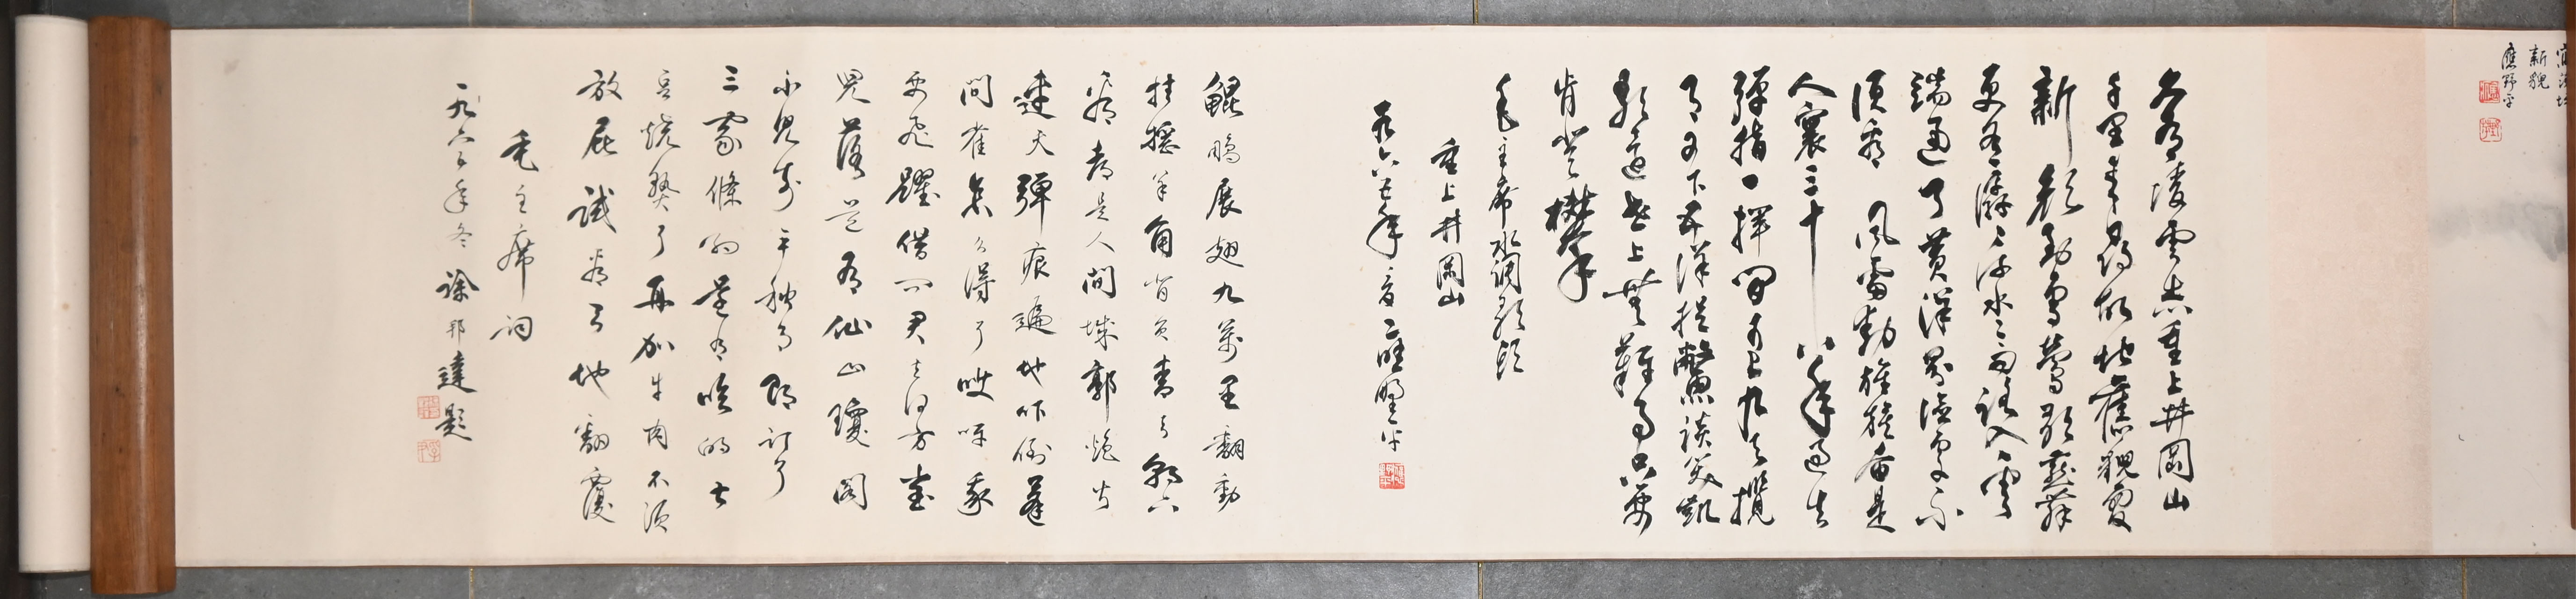 新貌
應野平
久有凌雲志重上井岡山
千里來尋故地舊貌變
新顏到處鶯歌燕舞
更有潺潺流水高路入雲
端過了黃洋界險處不
須看 風雷動旌旗奮是
人寰三十八年過去
彈指一揮間可上九天攬
月可下五洋捉鱉談笑凱
歌還世上無難事只要
肯登攀
毛主席水調歌頭
重上井岡山
年 應野平
鯤鵬展翅九萬里翻動
扶搖羊角背負青天朝下
看都是人間城郭炮火
連天彈痕遍地吓倒蓬
間雀怎么得了哎呀我
要飛躍借問君去何方雀
兒答道有仙山瓊閣
不見前年秋月朗訂了
三家條約還有吃的土
豆燒熟了再加牛肉不須
放屁試看天地翻覆
毛主席詞
年冬 徐邦達題